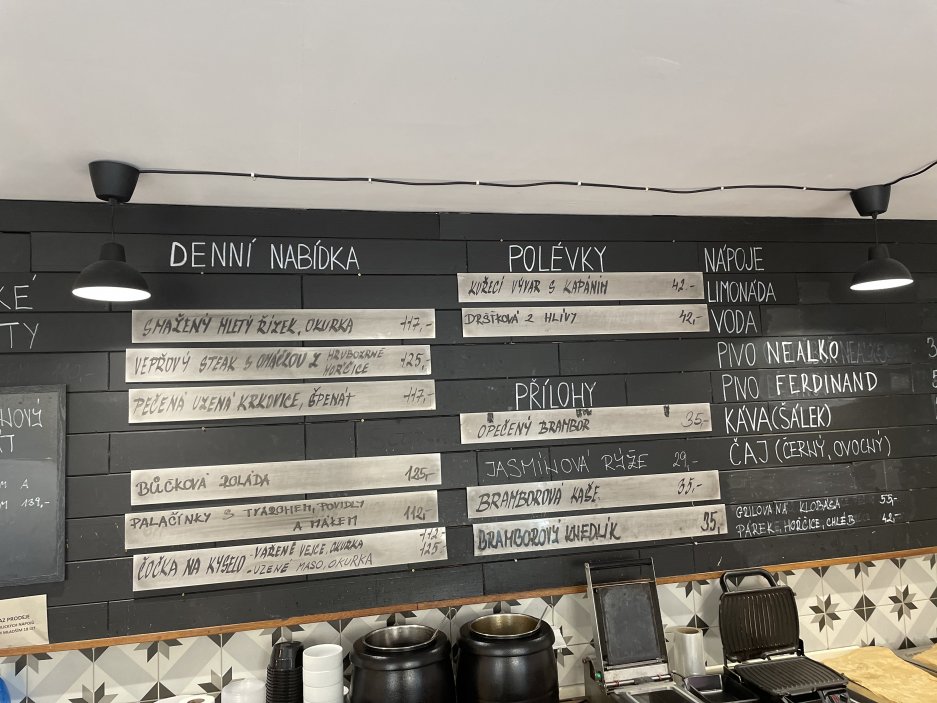 KÉ
TY
NOVÝ
ÁT
M A
M 139,-
AZ PRODEJE
DENNÍ NABÍDKA
SMAŽENÝ MLETÝ ŘÍZEK, OKURKA 117,-
VEPŘOVÝ STEAK S OMÁČKOU Z HRUBOZRNÉ HOŘČICE 125,-
PEČENÁ UZENÁ KRKOVICE, ŠPENÁT 117,-
BŮČKOVÁ ROLÁDA 125,-
PALAČINKY S TVAROHEM, POVIDLY 112,-
A MÁKEM
ČOČKA NA KYSELO - VAŘENÉ VEJCE, OKURKA 112
- UZENÉ MASO, OKURKA 125
POLÉVKY
KUŘECÍ VÝVAR S KAPÁNÍM 42.-
DRŠŤKOVÁ Z HLÍVY 42,-
PŘÍLOHY
OPEČENÝ BRAMBOR 35-
JASMÍNOVÁ RÝŽE 29,-
BRAMBOROVÁ KAŠE 35,-
BRAMBOROVÝ KNEDLÍK 35,
NÁPOJE
LIMONÁDA
VODA
PIVO NEALKO 3
PIVO FERDINAND
KÁVA (ŠÁLEK)
ČAJ (ČERNÝ, OVOCNÝ)
GRILOVANÁ KLOBÁSA 53,-
PÁREK, HOŘČICE, CHLÉB 42,-